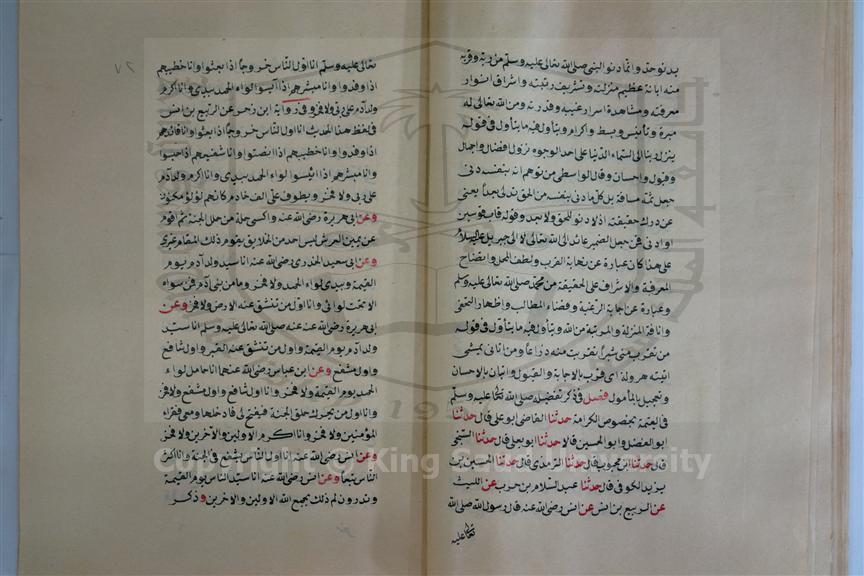 بدنو حد وانما دنو النبي صلى الله تعالى عليه وسلم من ربه وقربه
منه ابانة عظيم منزلته وتشريف رتبته واشراق انوار
معرفته ومشاهدة اسرار غيبه وقدرته ومن الله تعالى له
مبرة وتأنيس وبسط واكرام ويتأول فيه ما يتأول في قوله
ينزل ربنا الى السماء الدنيا على احد الوجوه نزول افضال واجمال
وقبول واحسان وقال الواسطي من توهم انه بنفسه دنى
جعل ثمة مسافة بل كل ما دنى بنفسه من الحق تدلى بعدا يعنى
عن درك حقيقته اذ لا دنو للحق ولا بعد وقوله قاب قوسين
او ادنى فمن جعل الضمير عائد الى الله تعالى لا الى جبريل عليه السلام
على هذا كان عبارة عن نهاية القرب ولطف المحل وايضاح
المعرفة والاشراف على الحقيقة من محمد صلى الله تعالى عليه وسلم
وعبارة عن اجابة الرغبة وقضاء المطالب واظهار التحفي
وانافة المنزلة والمرتبة من الله ويتأول فيه ما يتأول في قوله
من تقرب مني شبرا تقربت منه ذراعا ومن اتاني يمشي
اتيته هرولة اي قرب بالاجابة والقبول واتيان بالاحسان
وتعجيل بالمأمول فصل في ذكر تفضيله صلى الله تعالى عليه وسلم
في القيمة بخصوص الكرامة حدثنا القاضي ابو على قال حدثنا
ابو الفضل وابو الحسين قالا حدثنا ابو يعلى قال حدثنا السنجي
قال حدثنا ابن محبوب قال حدثنا الترمذي قال حدثنا الحسين بن
يزيد الكوفي قال حدثنا عبد السلام بن حرب عن الليث
عن الربيع بن انس عن انس رضى الله عنه قال رسول الله صلى الله
تعالى عليه
٦٧
تعالى عليه وسلم انا اول الناس خروجا اذا بعثوا وانا خطيبهم
اذا وفدوا وانا مبشرهم اذا آيسوا لواء الحمد بيدي وانا اكرم
ولد آدم على ربى ولا فخر وفي رواية ابن زحر عن الربيع بن انس
في لفظ هذا الحديث انا اول الناس خروجا اذا بعثوا وانا قائدهم
اذا وفدوا وانا خطيبهم اذا انصتوا وانا شفيعهم اذا حبسوا
وانا مبشرهم اذا ائيسوا لواء الحمد بيدى وانا اكرم ولد آدم
على ربى ولا فخر ويطوف على الف خادم كانهم لؤلؤ مكنون
وعن ابى هريرة رضى الله عنه واكسى حلة من حلل الجنة ثم اقوم
عن يمين العرش ليس احد من الخلايق يقوم ذلك المقام غيرى
وعن ابى سعيد الخدرى رضى الله عنه انا سيد ولد آدم يوم
القيمة وبيدى لواء الحمد ولا فخر وما من بنى آدم فمن سواه
الا تحت لوائى وانا اول من تنشق عنه الارض ولا فخر وعن
ابى هريرة رضى الله عنه عنه صلى الله تعالى عليه وسلم انا سيد
ولد آدم يوم القيمة واول من تنشق عنه القبر واول شافع
واول مشفع وعن ابن عباس رضى الله عنهما انا حامل لواء
الحمد يوم القيمة ولا فخر وانا اول شافع واول مشفع ولا فخر
وانا اول من يحرك حلق الجنة فيفتح لى فادخلها ومعى فقراء
المؤمنين ولا فخر وانا اكرم الاولين والآخرين ولا فخر
وعن انس رضى الله عنه انا اول الناس يشفع في الجنة وانا اكثر
الناس تبعا وعن انس رضى الله عنه انا سيد الناس يوم القيمة
وتدرون لم ذلك يجمع الله الاولين والاخرين وذكر
Copyright © King Saud University
195